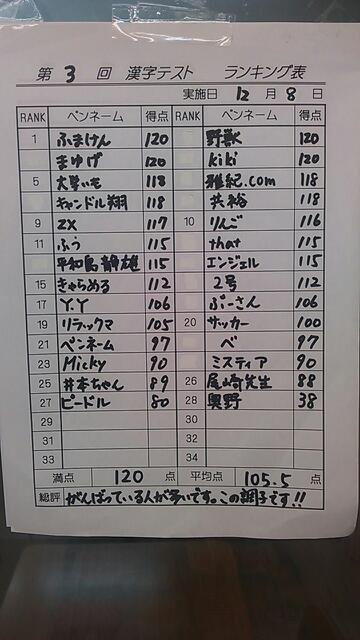 第 3 回 漢字テスト ランキング表
実施日 12 月 8 日
RANK ペンネーム 得点 RANK ペンネーム 得点
1 ふまけん 120 野獣 120
まゆげ 120 kiki 120
5 大学いも 118 雅紀.com 118
キャンドル翔 118 共裕 118
9 ZX 117 10 りんご 116
11 ふう 115 that 115
平和島静雄 115 エンジェル 115
15 きゃらめる 112 2号 112
17 Y.Y 106 ぷーさん 106
19 リラックマ 105 20 サッカー 100
21 ペンネーム 97 ペ 97
23 Micky 90 ミスティア 90
25 井本ちゃん 89 26 尾崎先生 88
27 ピードル 80 28 奥野 38
29 30
31 32
33 34
満点 120 点 平均点 105.5 点
総評 がんばっている人が多いです。この調子です!!